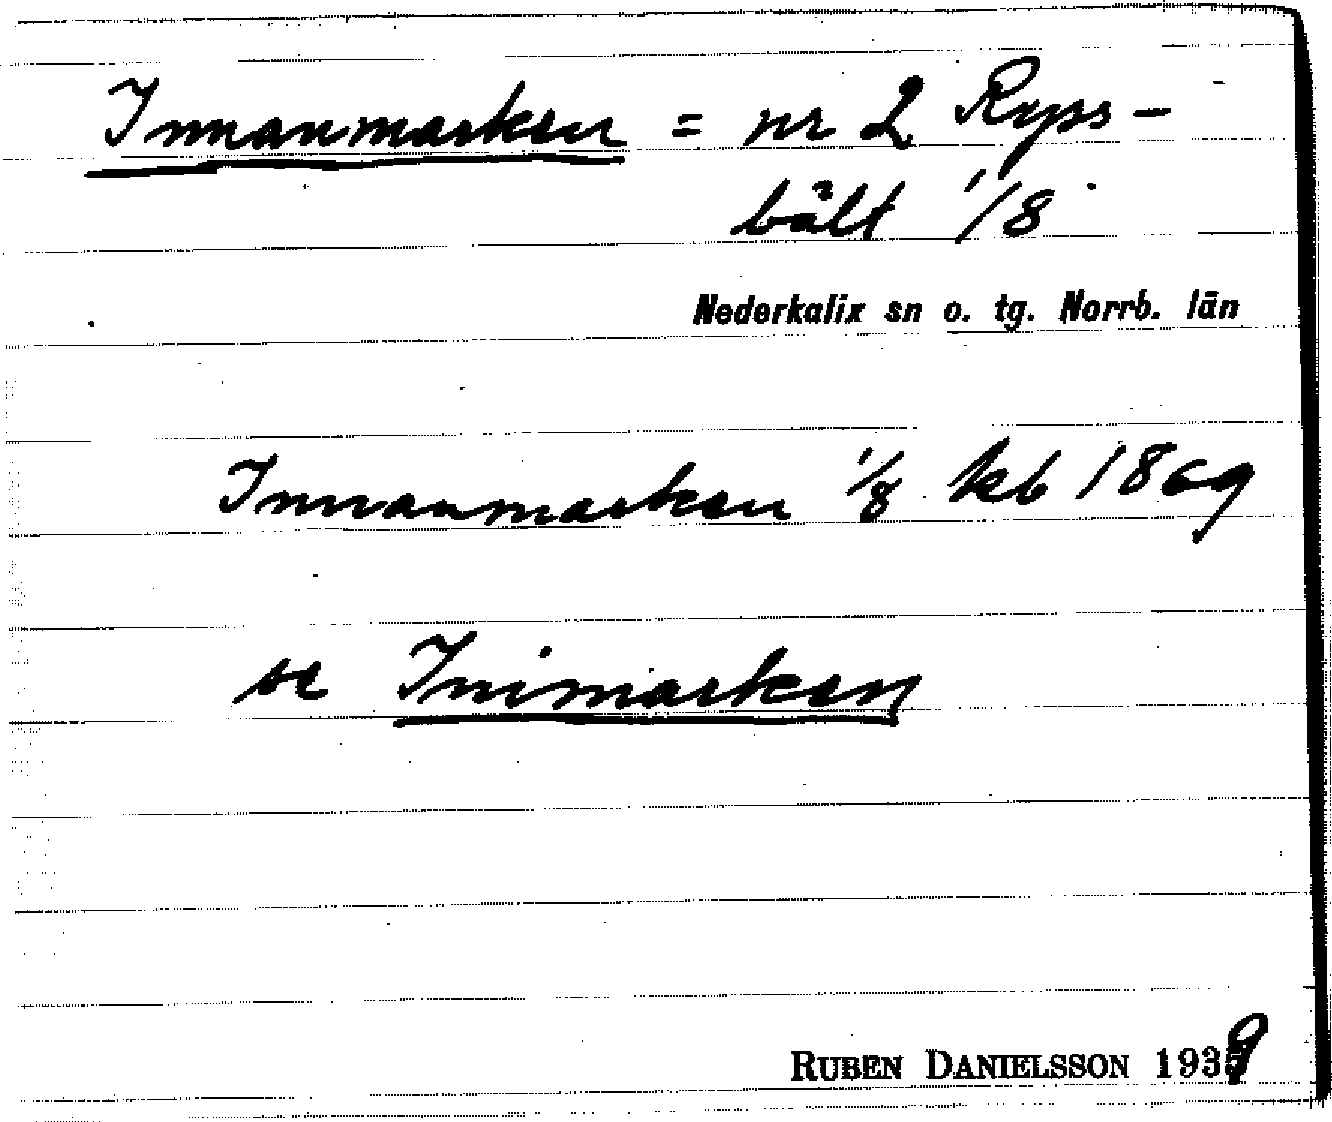 Innanmarken = nr 2 Ryss-
bält 1/8
Nederkalix sn o. tg. Norrb. län
Innanmarken 1/8 kb 1869
se Inimarken
RUBEN DANIELSSON 1939